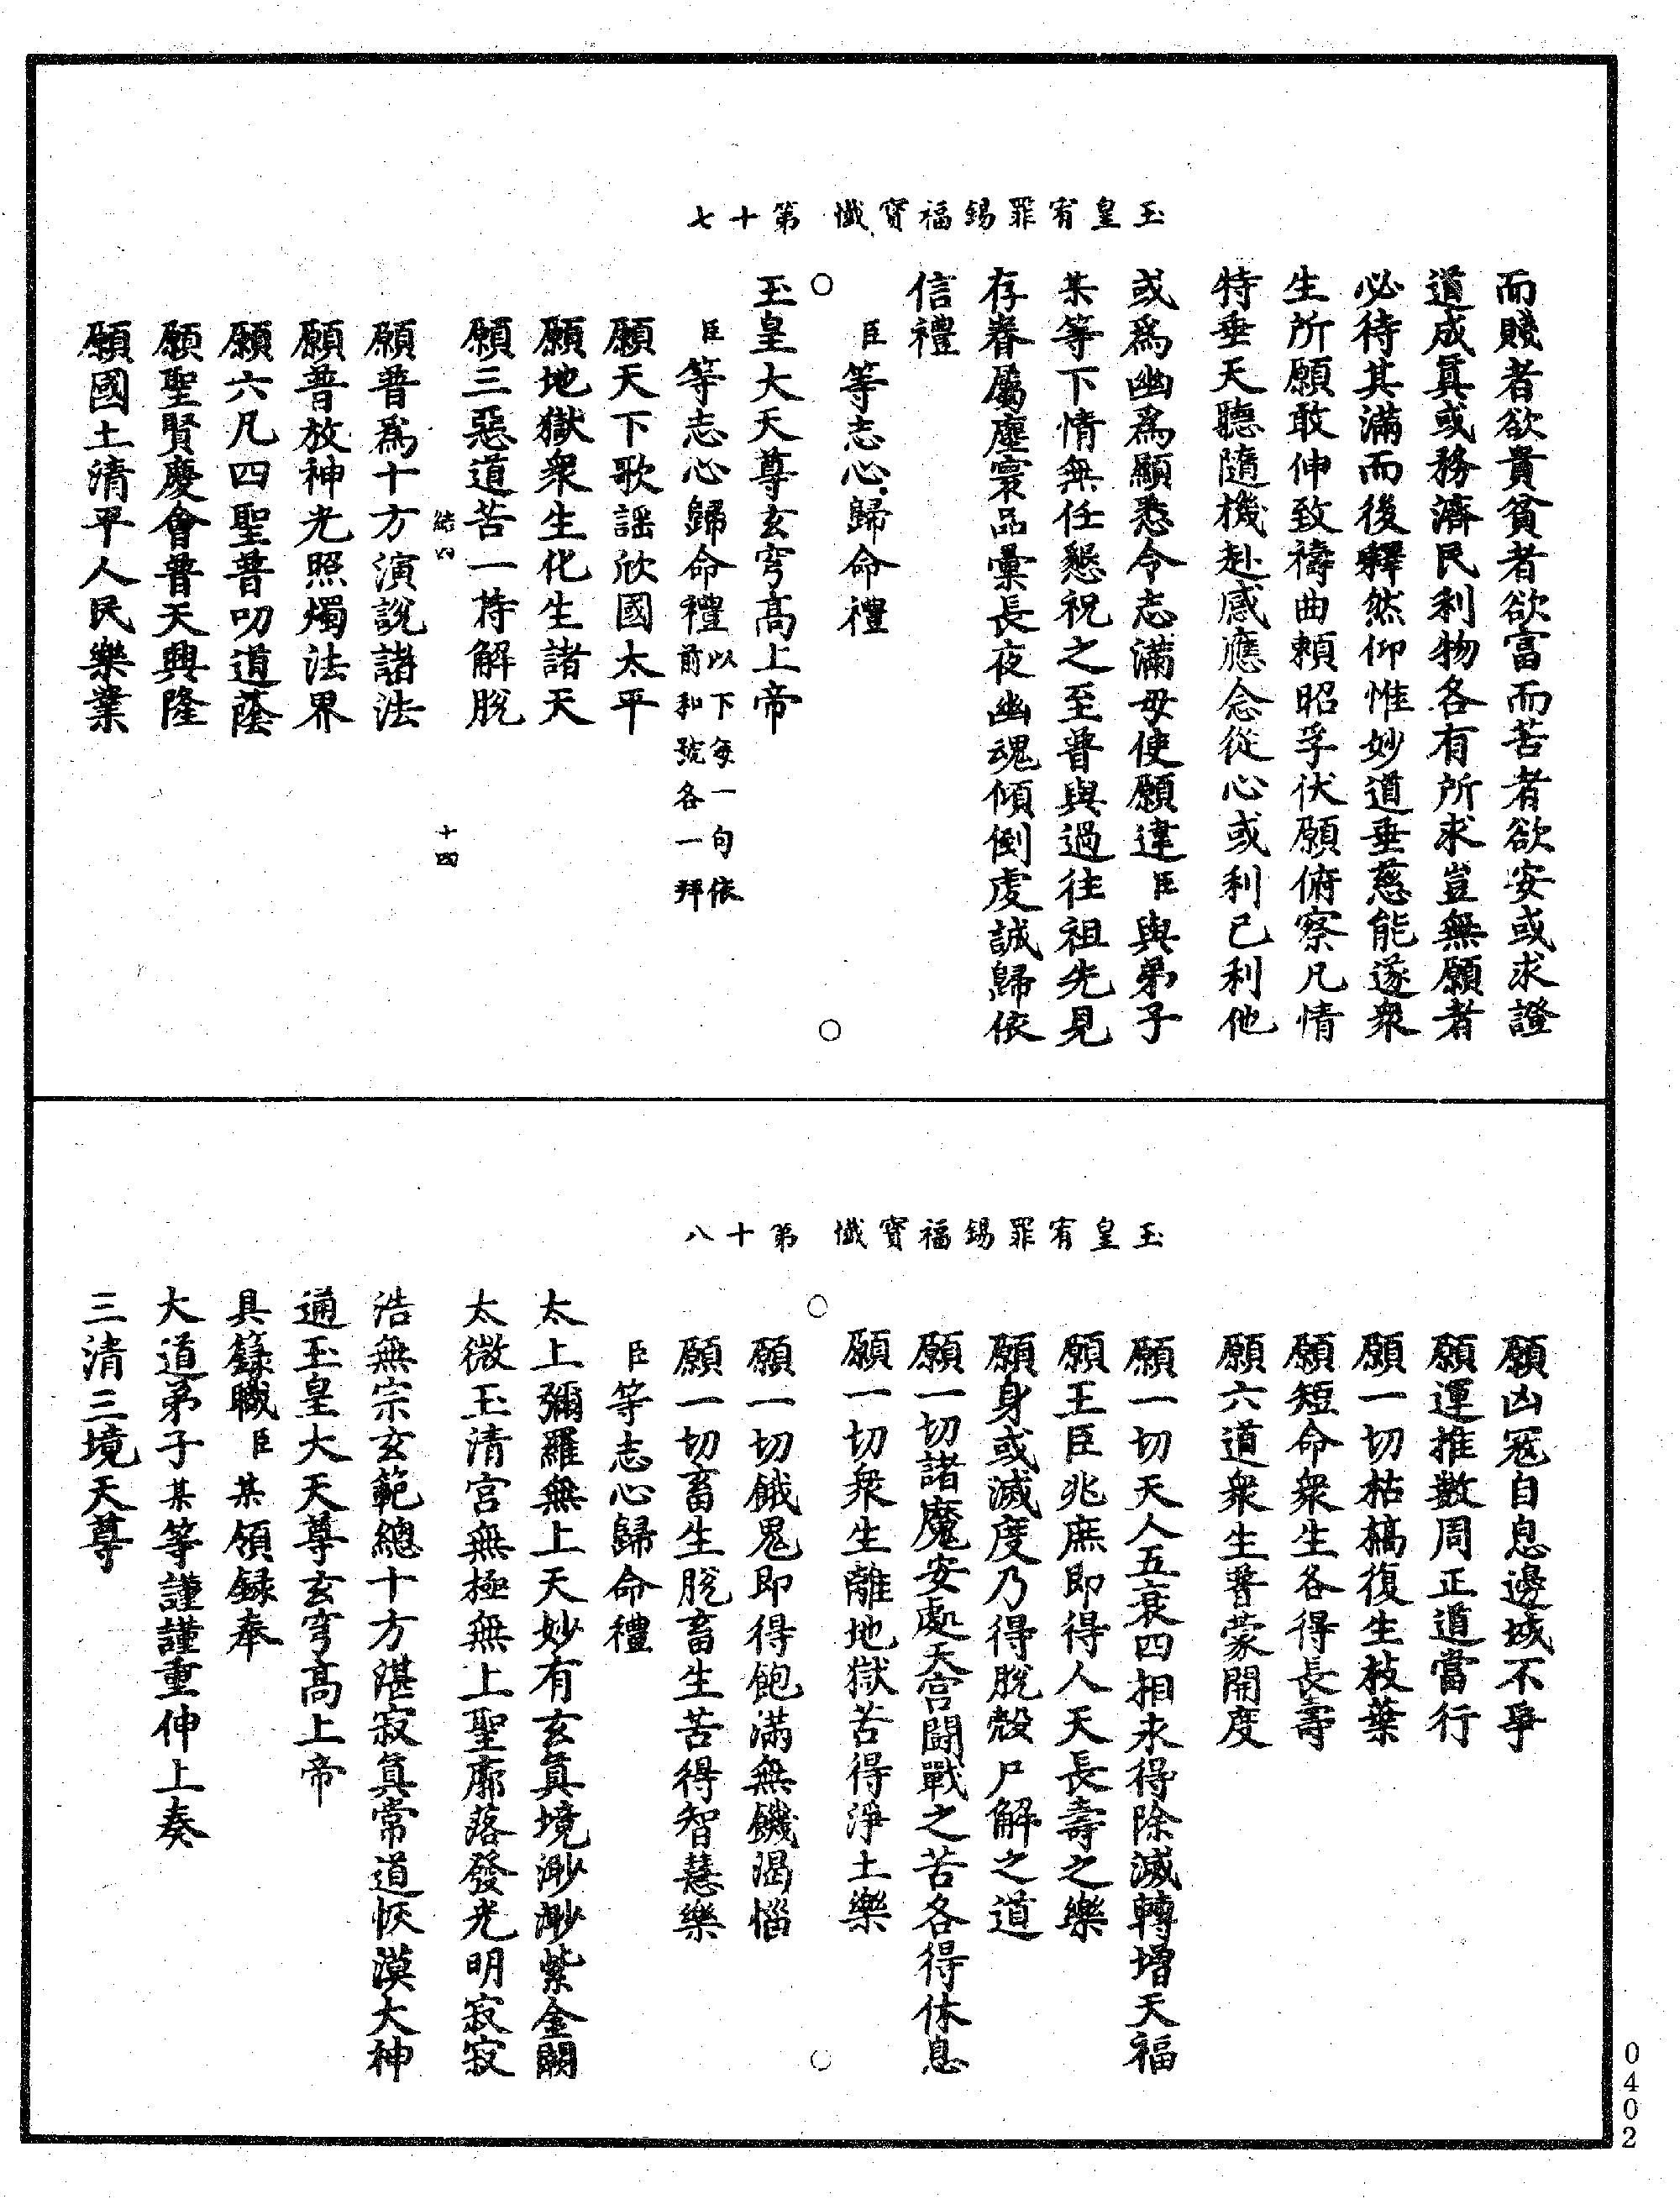 玉皇宥罪錫福寶懺　第十七
而賤者欲貴貧者欲富而苦者欲安或求證
道成眞或務濟民利物各有所求豈無願者
必待其滿而後釋然仰惟妙道垂慈能遂衆
生所願敢伸致禱曲頼昭孚伏願俯察凡情
特垂天聽隨機赴感應念從心或利己利他
或爲幽爲顯悉令志滿毋使願違臣與弟子
某等下情無任懇祝之至普與過往祖先見
存眷屬塵寰品彙長夜幽魂傾倒虔誠歸依
信禮
臣等志心歸命禮
玉皇大天尊玄穹高上帝
臣等志心歸命禮以下每一句依前和號各一拜
願天下歌謡欣國太平
願地獄衆生化生諸天
願三惡道苦一時解脫
結六　十四
願普爲十方演說諸法
願普放神光照燭法界
願六凡四聖普叨道蔭
願聖賢慶會普天興隆
願國土清平人民樂業
玉皇宥罪錫福寶懺　第十八
願凶冦自息邊城不爭
願運推數周正道當行
願一切枯槁復生枝葉
願短命衆生各得長壽
願六道衆生普蒙開度
願一切天人五衰四相永得除滅轉增天福
願王臣兆庶即得人天長壽之樂
願身或滅度乃得脫殼尸解之道
願一切諸魔安處天宫闘戰之苦各得休息
願一切衆生離地獄苦得淨土樂
願一切餓鬼即得飽滿無饑渴惱
願一切畜生脫畜生苦得智慧樂
臣等志心歸命禮
太上彌羅無上天妙有玄眞境渺渺紫金闕
太微玉清宮無極無上聖廓落發光明寂寂
浩無宗玄範總十方湛寂眞常道恢漠大神
通玉皇大天尊玄穹高上帝
具籙職臣某領録奉
大道弟子某等謹謹重伸上奏
三清三境天尊
0402